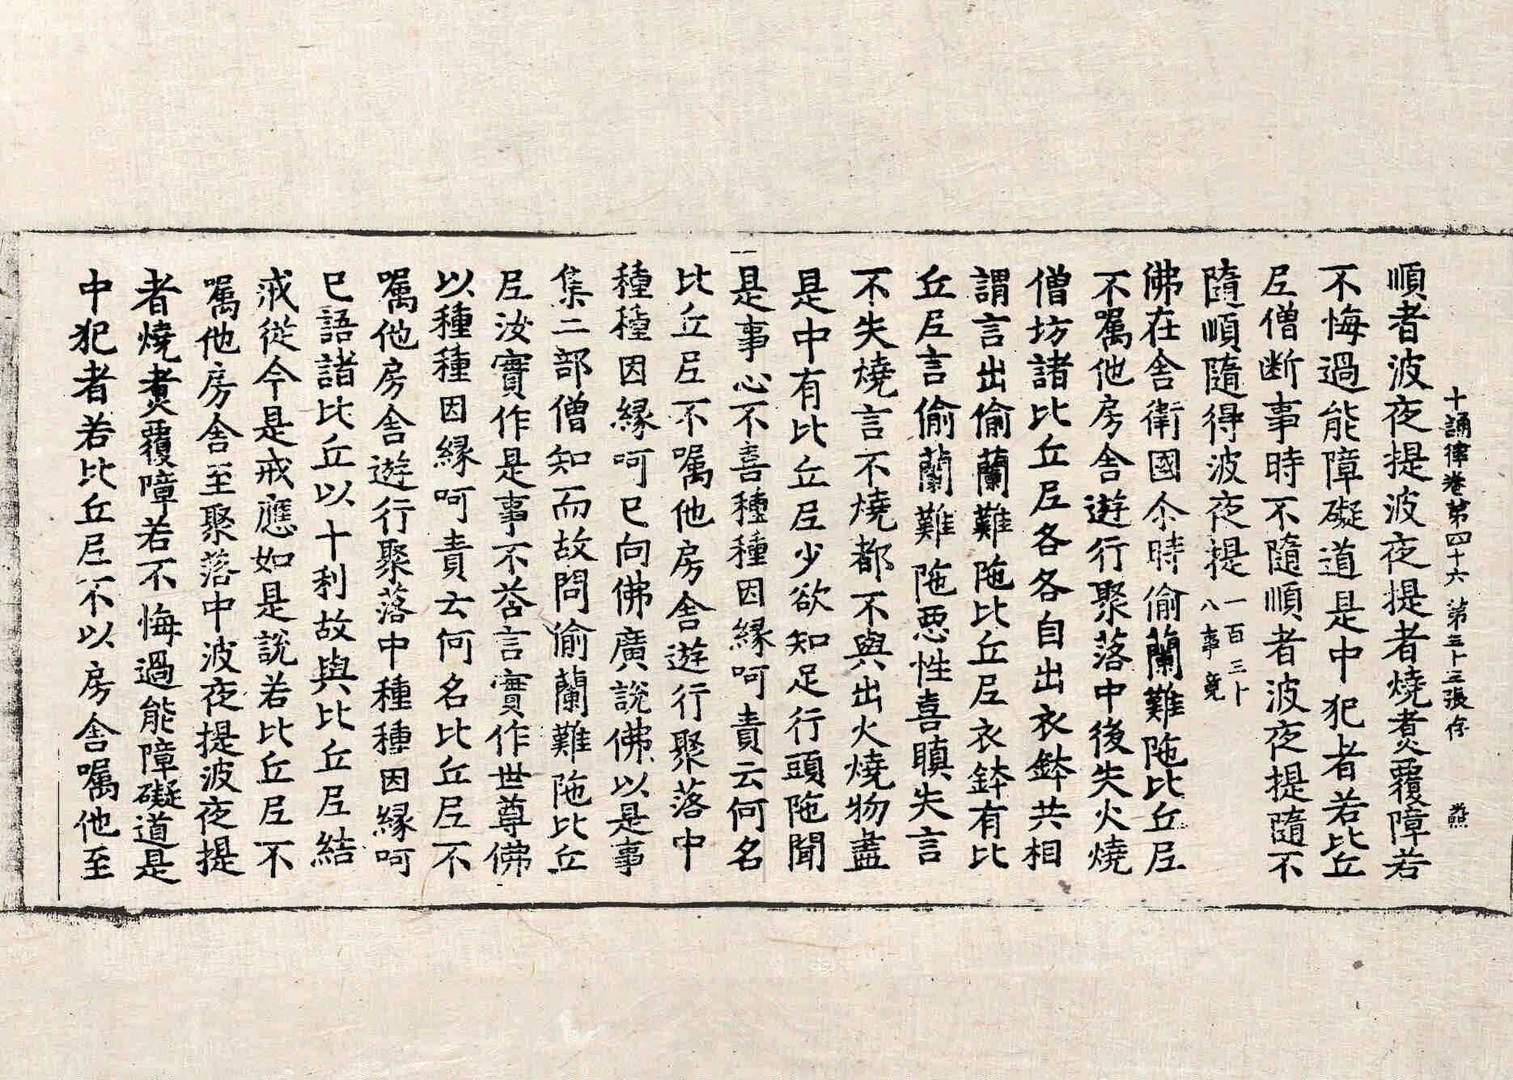 十誦律卷第四十六 第三十三張 存
順者波夜提波夜提者燒煑覆障若
不悔過能障礙道是中犯者若比丘
尼僧断事時不隨順者波夜提隨不
隨順隨得波夜提一百三十八事竟
佛在舍衛國尒時偷蘭難陁比丘尼
不囑他房舍遊行聚落中後失火燒
僧坊諸比丘尼各各自出衣鉢共相
謂言出偷蘭難陁比丘尼衣鉢有比
丘尼言偷蘭難陁惡性喜瞋失言
不失燒言不燒都不與出火燒物盡
是中有比丘尼少欲知足行頭陁聞
是事心不喜種種因緣呵責云何名
比丘尼不囑他房舍遊行聚落中
種種因緣呵已向佛廣說佛以是事
集二部僧知而故問偷蘭難陁比丘
尼汝實作是事不荅言實作世尊佛
以種種因緣呵責云何名比丘尼不
囑他房舍遊行聚落中種種因緣呵
已語諸比丘以十利故與比丘尼結
戒從今是戒應如是說若比丘尼不
囑他房舍至聚落中波夜提波夜提
者燒煑覆障若不悔過能障礙道是
中犯者若比丘尼不以房舍囑他至